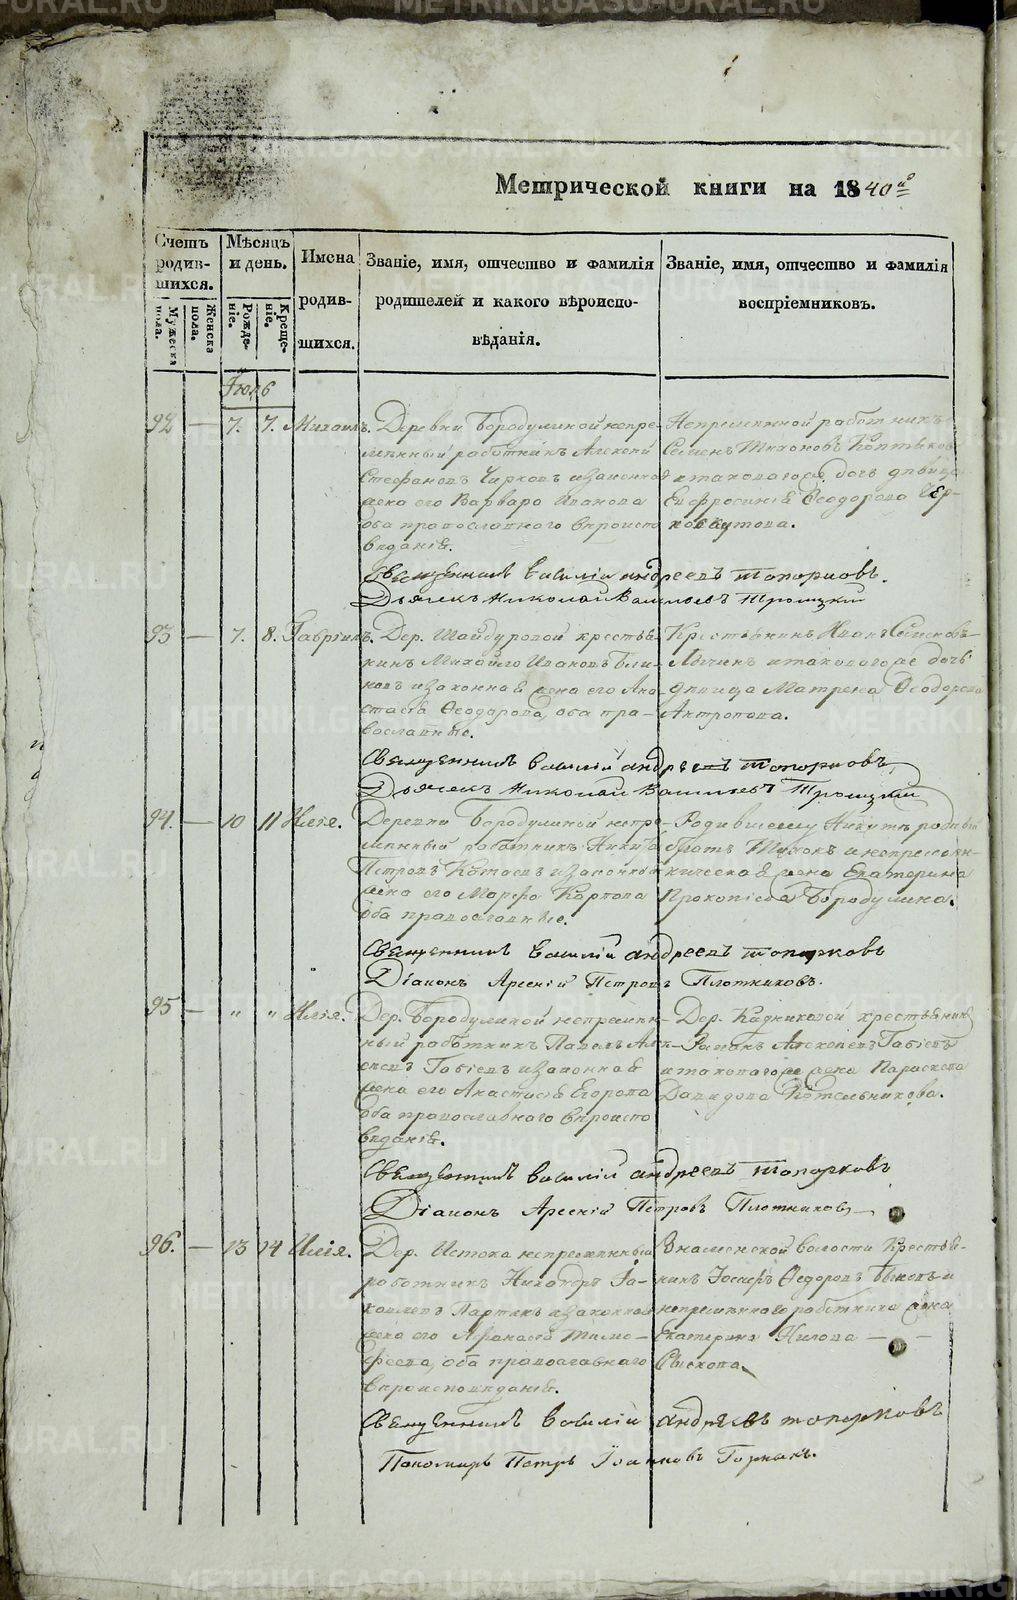 Метрической книги на 1840й
Счетъ родившихся.
Мужеска пола.
Женска пола.
Мѣсяцъ и день.
Рожденіе.
Крещеніе.
Имена родившихся.
Званіе, имя, отчество и фамилія родителей и какого вѣроисповѣданія.
Званіе, имя, отчество и фамилія воспріемниковъ.
Іюль
92 — 7. 7. Михаилъ.
Деревни Бородулиной непре-
мѣнный работникъ Алексѣй
Стефановъ и законная
жена его Варвара Иванова
оба православнаго вѣроиспо
вѣданія.
Непремѣнной работникъ
Семенъ Тихоновъ
и таковагоже дочь дѣвица
Евфросинія Ѳеодорова
Священникъ Василій Андреевъ Топорковъ.
Дьячекъ Николай Васильевъ Троицкій
93 — 7. 8. Гавріилъ.
Дер. Шайдуровой крестья-
нинъ Михайло Ивановъ
и законная жена его Ана-
стасія Ѳеодорова, оба пра-
вославные.
Крестьянинъ Иванъ Семеновъ
и таковагоже дочь
дѣвица Матрена Ѳеодорова
Антропова.
Священникъ Василій Андреевъ Топорковъ
Дьячекъ Николай Васильевъ Троицкій
94. — 10 11 Илія.
Деревни Бородулиной непре-
мѣнный работникъ Никита
Петровъ Котовъ и законная
жена его Марфа Карпова
оба православные.
Родившему Никитѣ родный
братъ Тихонъ и непремѣн-
ническая жена Екатерина
Прокопіева Бородулина.
Священникъ Василій Андреевъ Топорковъ
Діаконъ Арсеній Петровъ Плотниковъ.
95 — „ „ Илія.
Дер. Бородулиной непремѣн-
ный работникъ Павелъ Але-
ксѣевъ и законная
жена его Анастасія Егорова
оба православнаго вѣроиспо
вѣданія.
Дер. Кадниковой крестьянинъ
Алексѣевъ
и таковагоже жена Параскева
Давидова Котельникова.
Священникъ Василій Андреевъ Топорковъ
Діаконъ Арсеній Петровъ Плотниковъ
96. — 13 14 Илія.
Дер. Истока непремѣнный
работникъ Никифоръ Іа-
ковлевъ и законная
жена его Афанасія Тимо-
феева, оба православнаго
вѣроисповѣданія.
Знаменской волости крестья-
нинъ Іосифъ Ѳедоровъ Быковъ и
непремѣннаго работника жена
Екатерина Нилова
Священникъ Василій Андреевъ Топорковъ
Пономарь Петръ Іоанновъ
METRIKI.GASO-URAL.RU